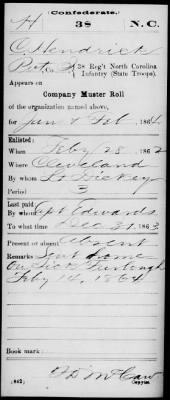 Confederate.
H 38 N. C.
C. Hendrick
Pvt, Co. 38 Reg't North Carolina
Infantry (State Troops).
Appears on
Company Muster Roll
of the organization named above,
for Jan & Feb, 1864
Enlisted:
When Feby 28, 1862
Where Cleveland
By whom Lt Dickey
Period 3
Last paid:
By whom Capt Edwards
To what time Dec 31, 1863
Present or absent Absent
Remarks: Sent home
On Sick Furlough
Feby 14, 1864
Book mark:
(642) McCaw
Copyist.